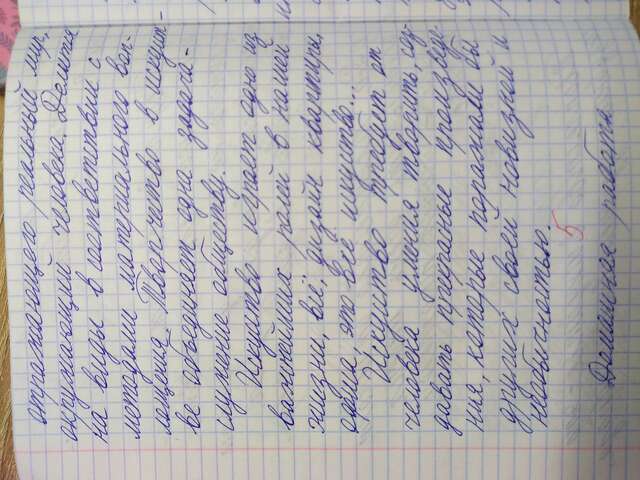 отражающего реальный мир,
окружающий человека. Делится
на виды в соответствии с
методами материального воп-
лощения. Творчество в искуст-
ве объединяет одна задача -
служение обществу.
Искуство играет одно из
важнейших ролей в нашей
жизни, всё, дизайн квартиры,
дома, это все искуство...
Искуство требует от
человека умения творить, соз-
давать прекраные произведе-
ния, которые поражали бы
других своей новизной и
необычностью.
5
Домашняя работа